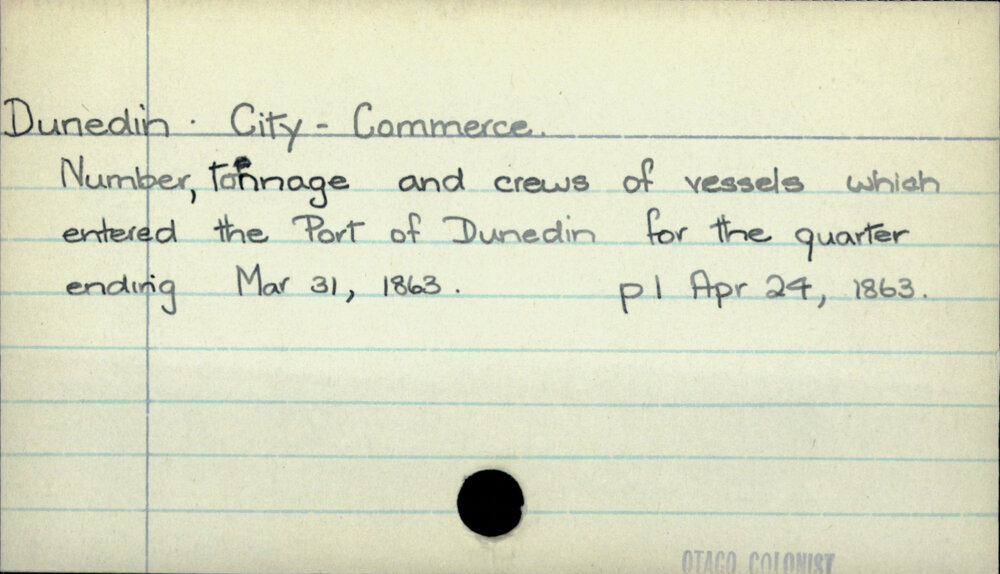 Dunedin. City - Commerce.
Number, tonnage and crews of vessels which
entered the Port of Dunedin for the quarter
ending Mar 31, 1863. p1 Apr 24, 1863.
OTAGO COLONIST